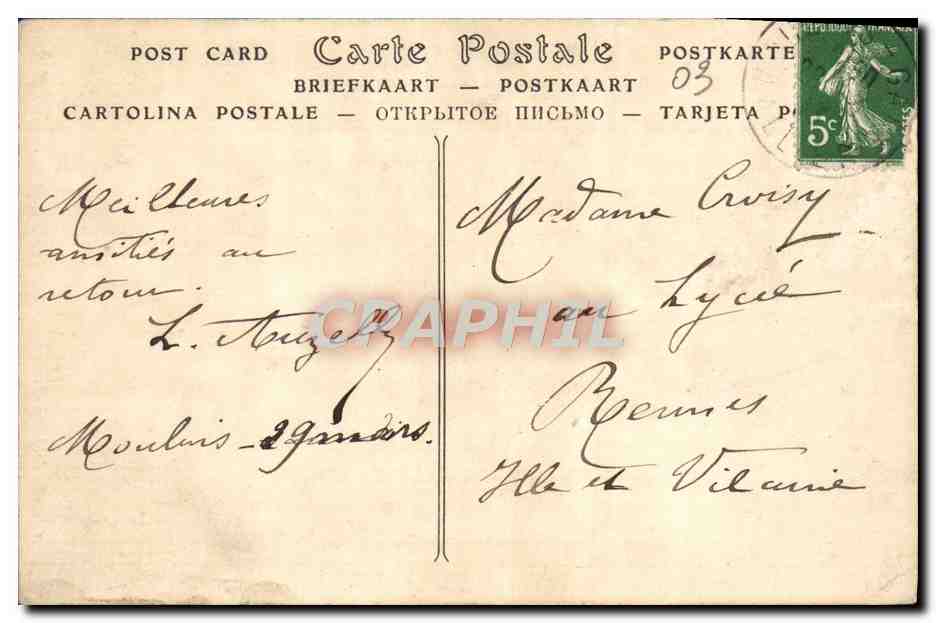 POST CARD Carte Postale POSTKARTE
BRIEFKAART — POSTKAART
03
CARTOLINA POSTALE — ОТКРЫТОЕ ПИСЬМО — TARJETA P
5c
Meilleures
amitiés au
retour.
L. Auzelly
Moulins - 29 mars.
Madame Croisy
au Lycée
Rennes
Ille et Vilaine
CRAPHIL